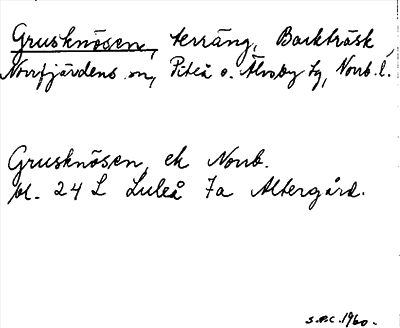 Grusknösen, terräng, Backträsk,
Norrfjärdens sn, Piteå o. Älvsby tg, Norrb. l.
Grusknösen, ek Norrb.
bl. 24 L Luleå 7a Altergård.
S.P.C. 1960.